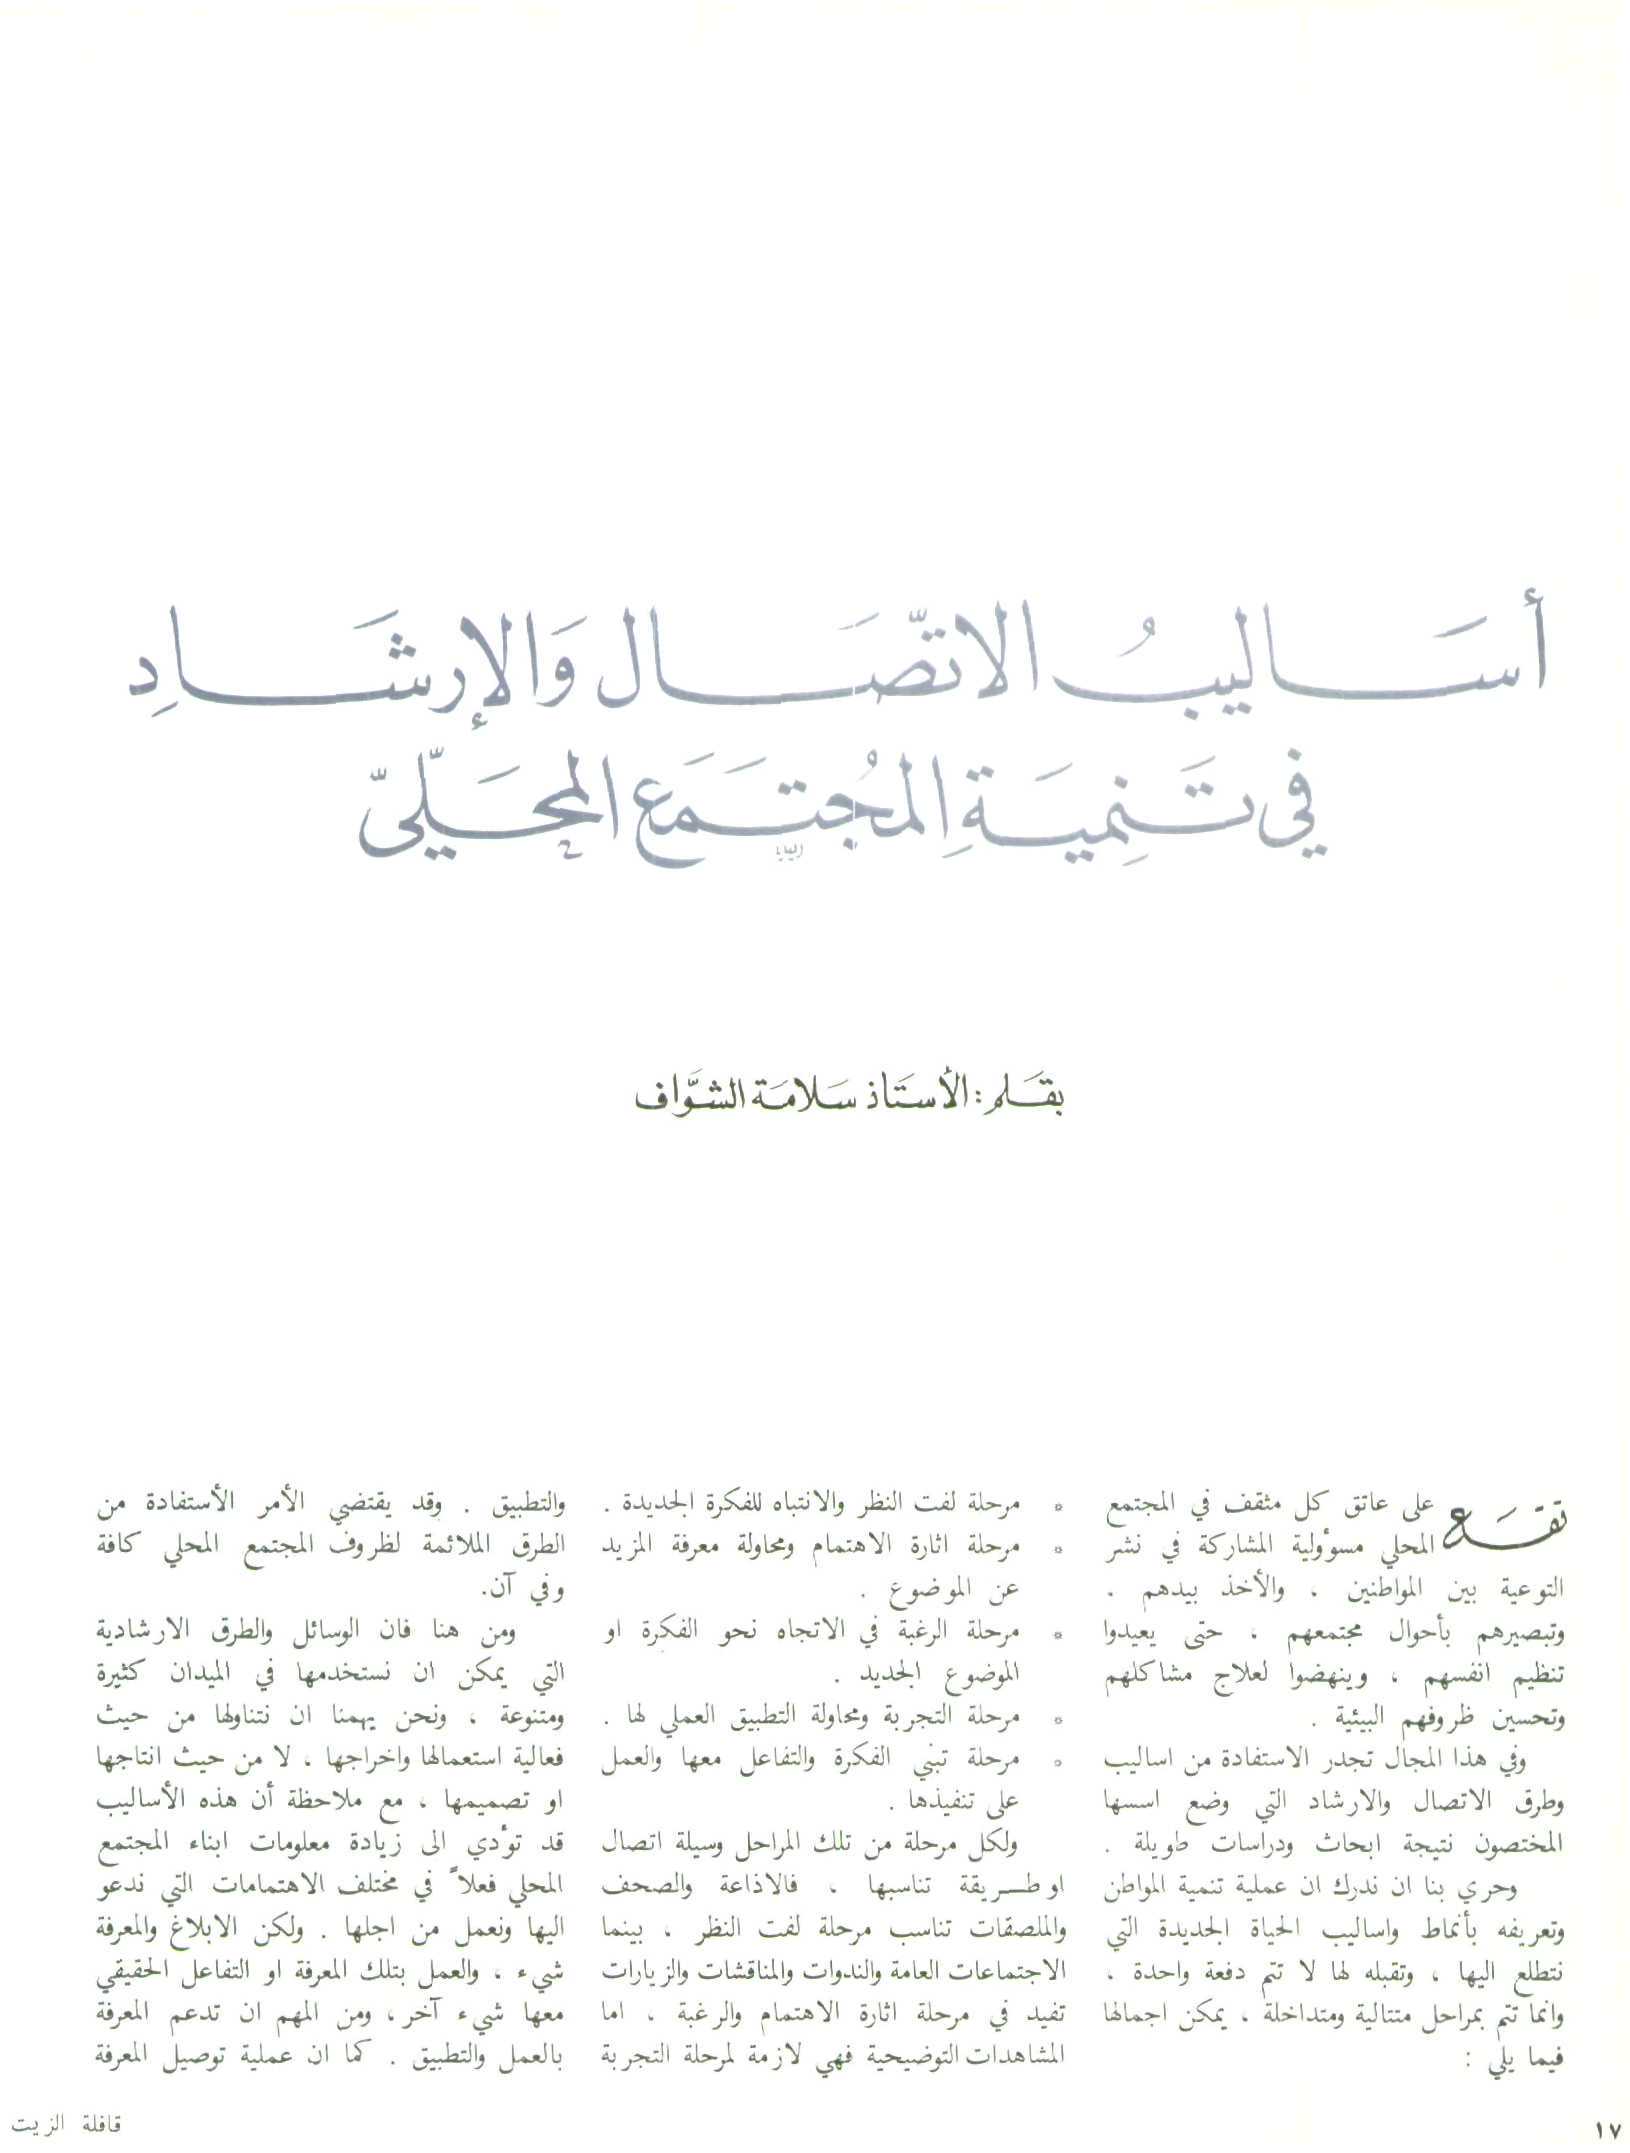 أَسَاليبُ الاتّصَال وَالإرشَادِ
في تَنمِيَةِ المُجتَمَع المحَلّيّ
بقَلم: الأستَاذ سَلامَة الشوَّاف
تقَع على عاتق كل مثقف في المجتمع
المحلي مسؤولية المشاركة في نشر
التوعية بين المواطنين ، والأخذ بيدهم ،
وتبصيرهم بأحوال مجتمعهم ، حتى يعيدوا
تنظيم انفسهم ، وينهضوا لعلاج مشاكلهم
وتحسين ظروفهم البيئية .
وفي هذا المجال تجدر الاستفادة من اساليب
وطرق الاتصال والارشاد التي وضع اسسها
المختصون نتيجة ابحاث ودراسات طويلة .
وحري بنا ان ندرك ان عملية تنمية المواطن
وتعريفه بأنماط واساليب الحياة الجديدة التي
نتطلع اليها ، وتقبله لها لا تتم دفعة واحدة ،
وانما تتم بمراحل متتالية ومتداخلة ، يمكن اجمالها
فيما يلي :
* مرحلة لفت النظر والانتباه للفكرة الجديدة .
* مرحلة اثارة الاهتمام ومحاولة معرفة المزيد
عن الموضوع .
* مرحلة الرغبة في الاتجاه نحو الفكرة او
الموضوع الجديد .
* مرحلة التجربة ومحاولة التطبيق العملي لها .
* مرحلة تبني الفكرة والتفاعل معها والعمل
على تنفيذها .
ولكل مرحلة من تلك المراحل وسيلة اتصال
او طـــريقة تناسبها ، فالاذاعة والصحف
والملصقات تناسب مرحلة لفت النظر ، بينما
الاجتماعات العامة والندوات والمناقشات والزيارات
تفيد في مرحلة اثارة الاهتمام والرغبة ، اما
المشاهدات التوضيحية فهي لازمة لمرحلة التجربة
والتطبيق . وقد يقتضي الأمر الأستفادة من
الطرق الملائمة لظروف المجتمع المحلي كافة
وفي آن.
ومن هنا فان الوسائل والطرق الارشادية
التي يمكن ان نستخدمها في الميدان كثيرة
ومتنوعة ، ونحن يهمنا ان نتناولها من حيث
فعالية استعمالها واخراجها ، لا من حيث انتاجها
او تصميمها ، مع ملاحظة أن هذه الأساليب
قد تؤدي الى زيادة معلومات ابناء المجتمع
المحلي فعلاً في مختلف الاهتمامات التي ندعو
اليها ونعمل من اجلها . ولكن الابلاغ والمعرفة
شيء ، والعمل بتلك المعرفة او التفاعل الحقيقي
معها شيء آخر ، ومن المهم ان تدعم المعرفة
بالعمل والتطبيق . كما ان عملية توصيل المعرفة
١٧
قافلة الزيت